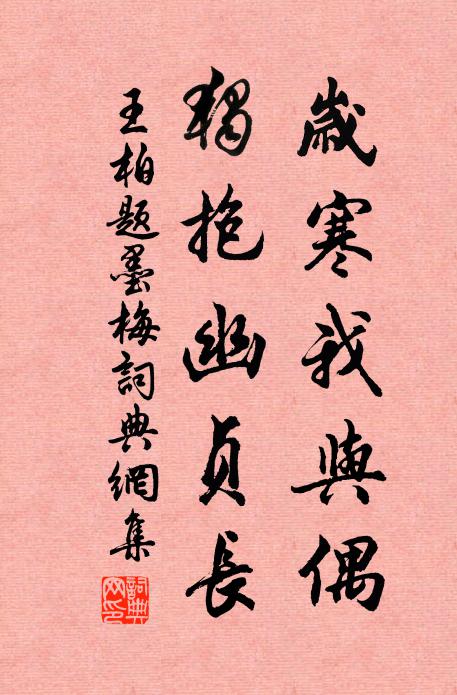 歲寒我與偶
獨抱幽貞長
王柏題墨梅詞典網集
詞典网印